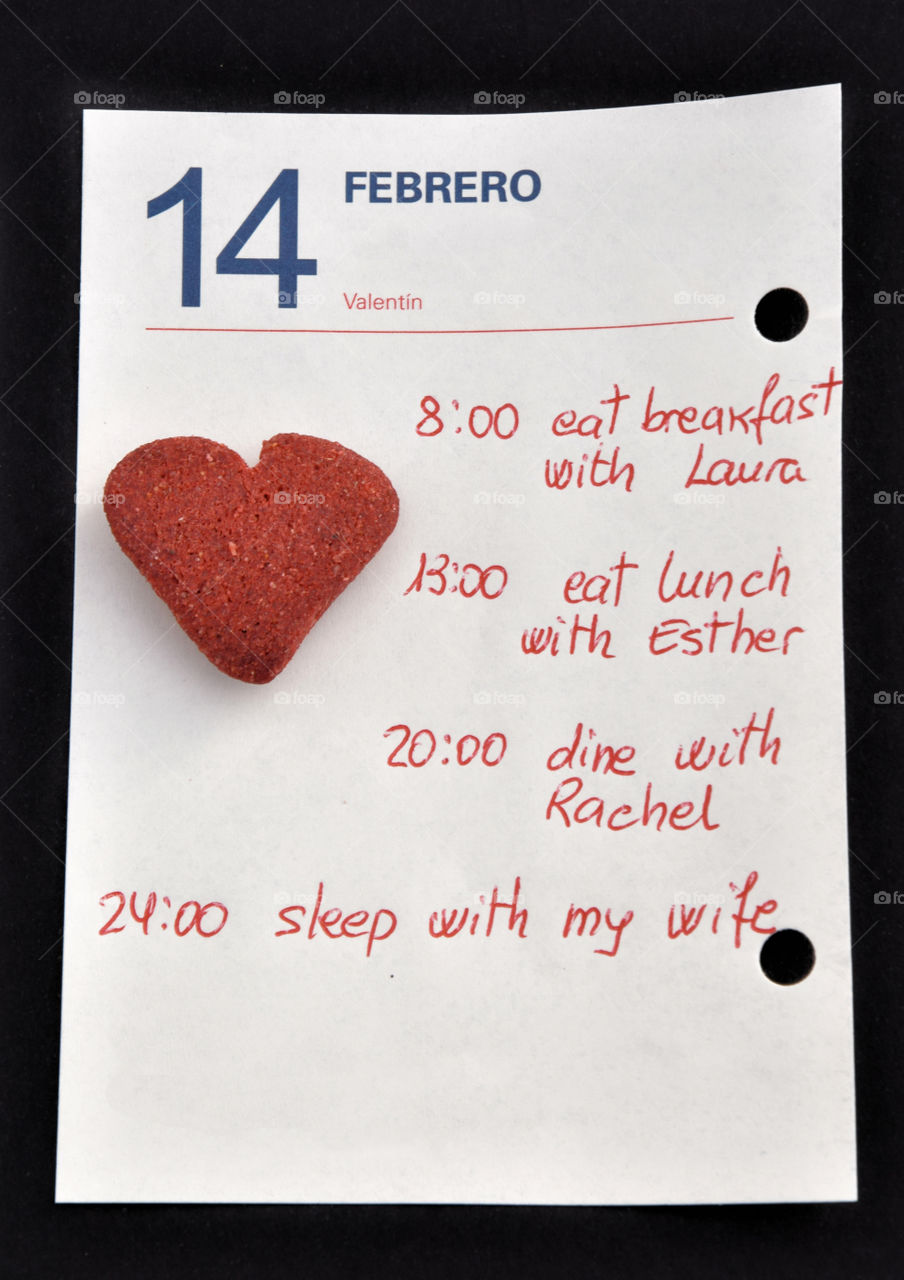 14 FEBRERO
Valentín
8:00 eat breakfast
with Laura
13:00 eat lunch
with Esther
20:00 dine with
Rachel
24:00 sleep with my wife
foap